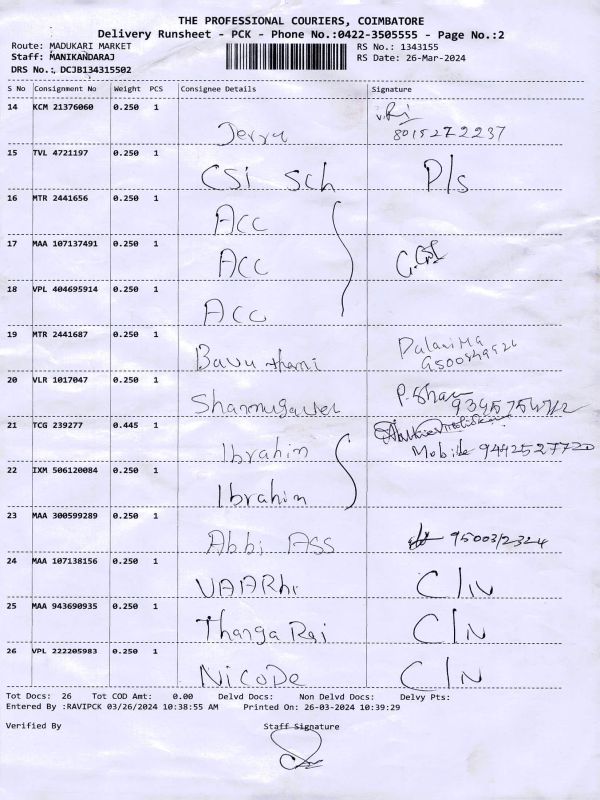 THE PROFESSIONAL COURIERS, COIMBATORE
Delivery Runsheet - PCK - Phone No.:0422-3505555 - Page No.:2
Route: MADUKARI MARKET RS No.: 1343155
Staff: MANIKANDARAJ RS Date: 26-Mar-2024
DRS No.: DCJB134315502
S No Consignment No Weight PCS Consignee Details Signature
14 KCM 21376060 0.250 1 Jerry 8015272237
15 TVL 4721197 0.250 1 CSi Sch P/s
16 MTR 2441656 0.250 1 Acc
17 MAA 107137491 0.250 1 Acc
18 VPL 404695914 0.250 1 Acc
19 MTR 2441687 0.250 1
20 VLR 1017047 0.250 1 Shanmugavel
21 TCG 239277 0.445 1 Ibrahim Mobile 9442527720
22 IXM 506120084 0.250 1 Ibrahim
23 MAA 300599289 0.250 1 Abbi ASS 9500312324
24 MAA 107138156 0.250 1 C/N
25 MAA 943690935 0.250 1 Thanga Raj C/N
26 VPL 222205983 0.250 1 NicoDe C/N
Tot Docs: 26 Tot COD Amt: 0.00 Delvd Docs: Non Delvd Docs: Delvy Pts:
Entered By :RAVIPCK 03/26/2024 10:38:55 AM Printed On: 26-03-2024 10:39:29
Verified By Staff Signature